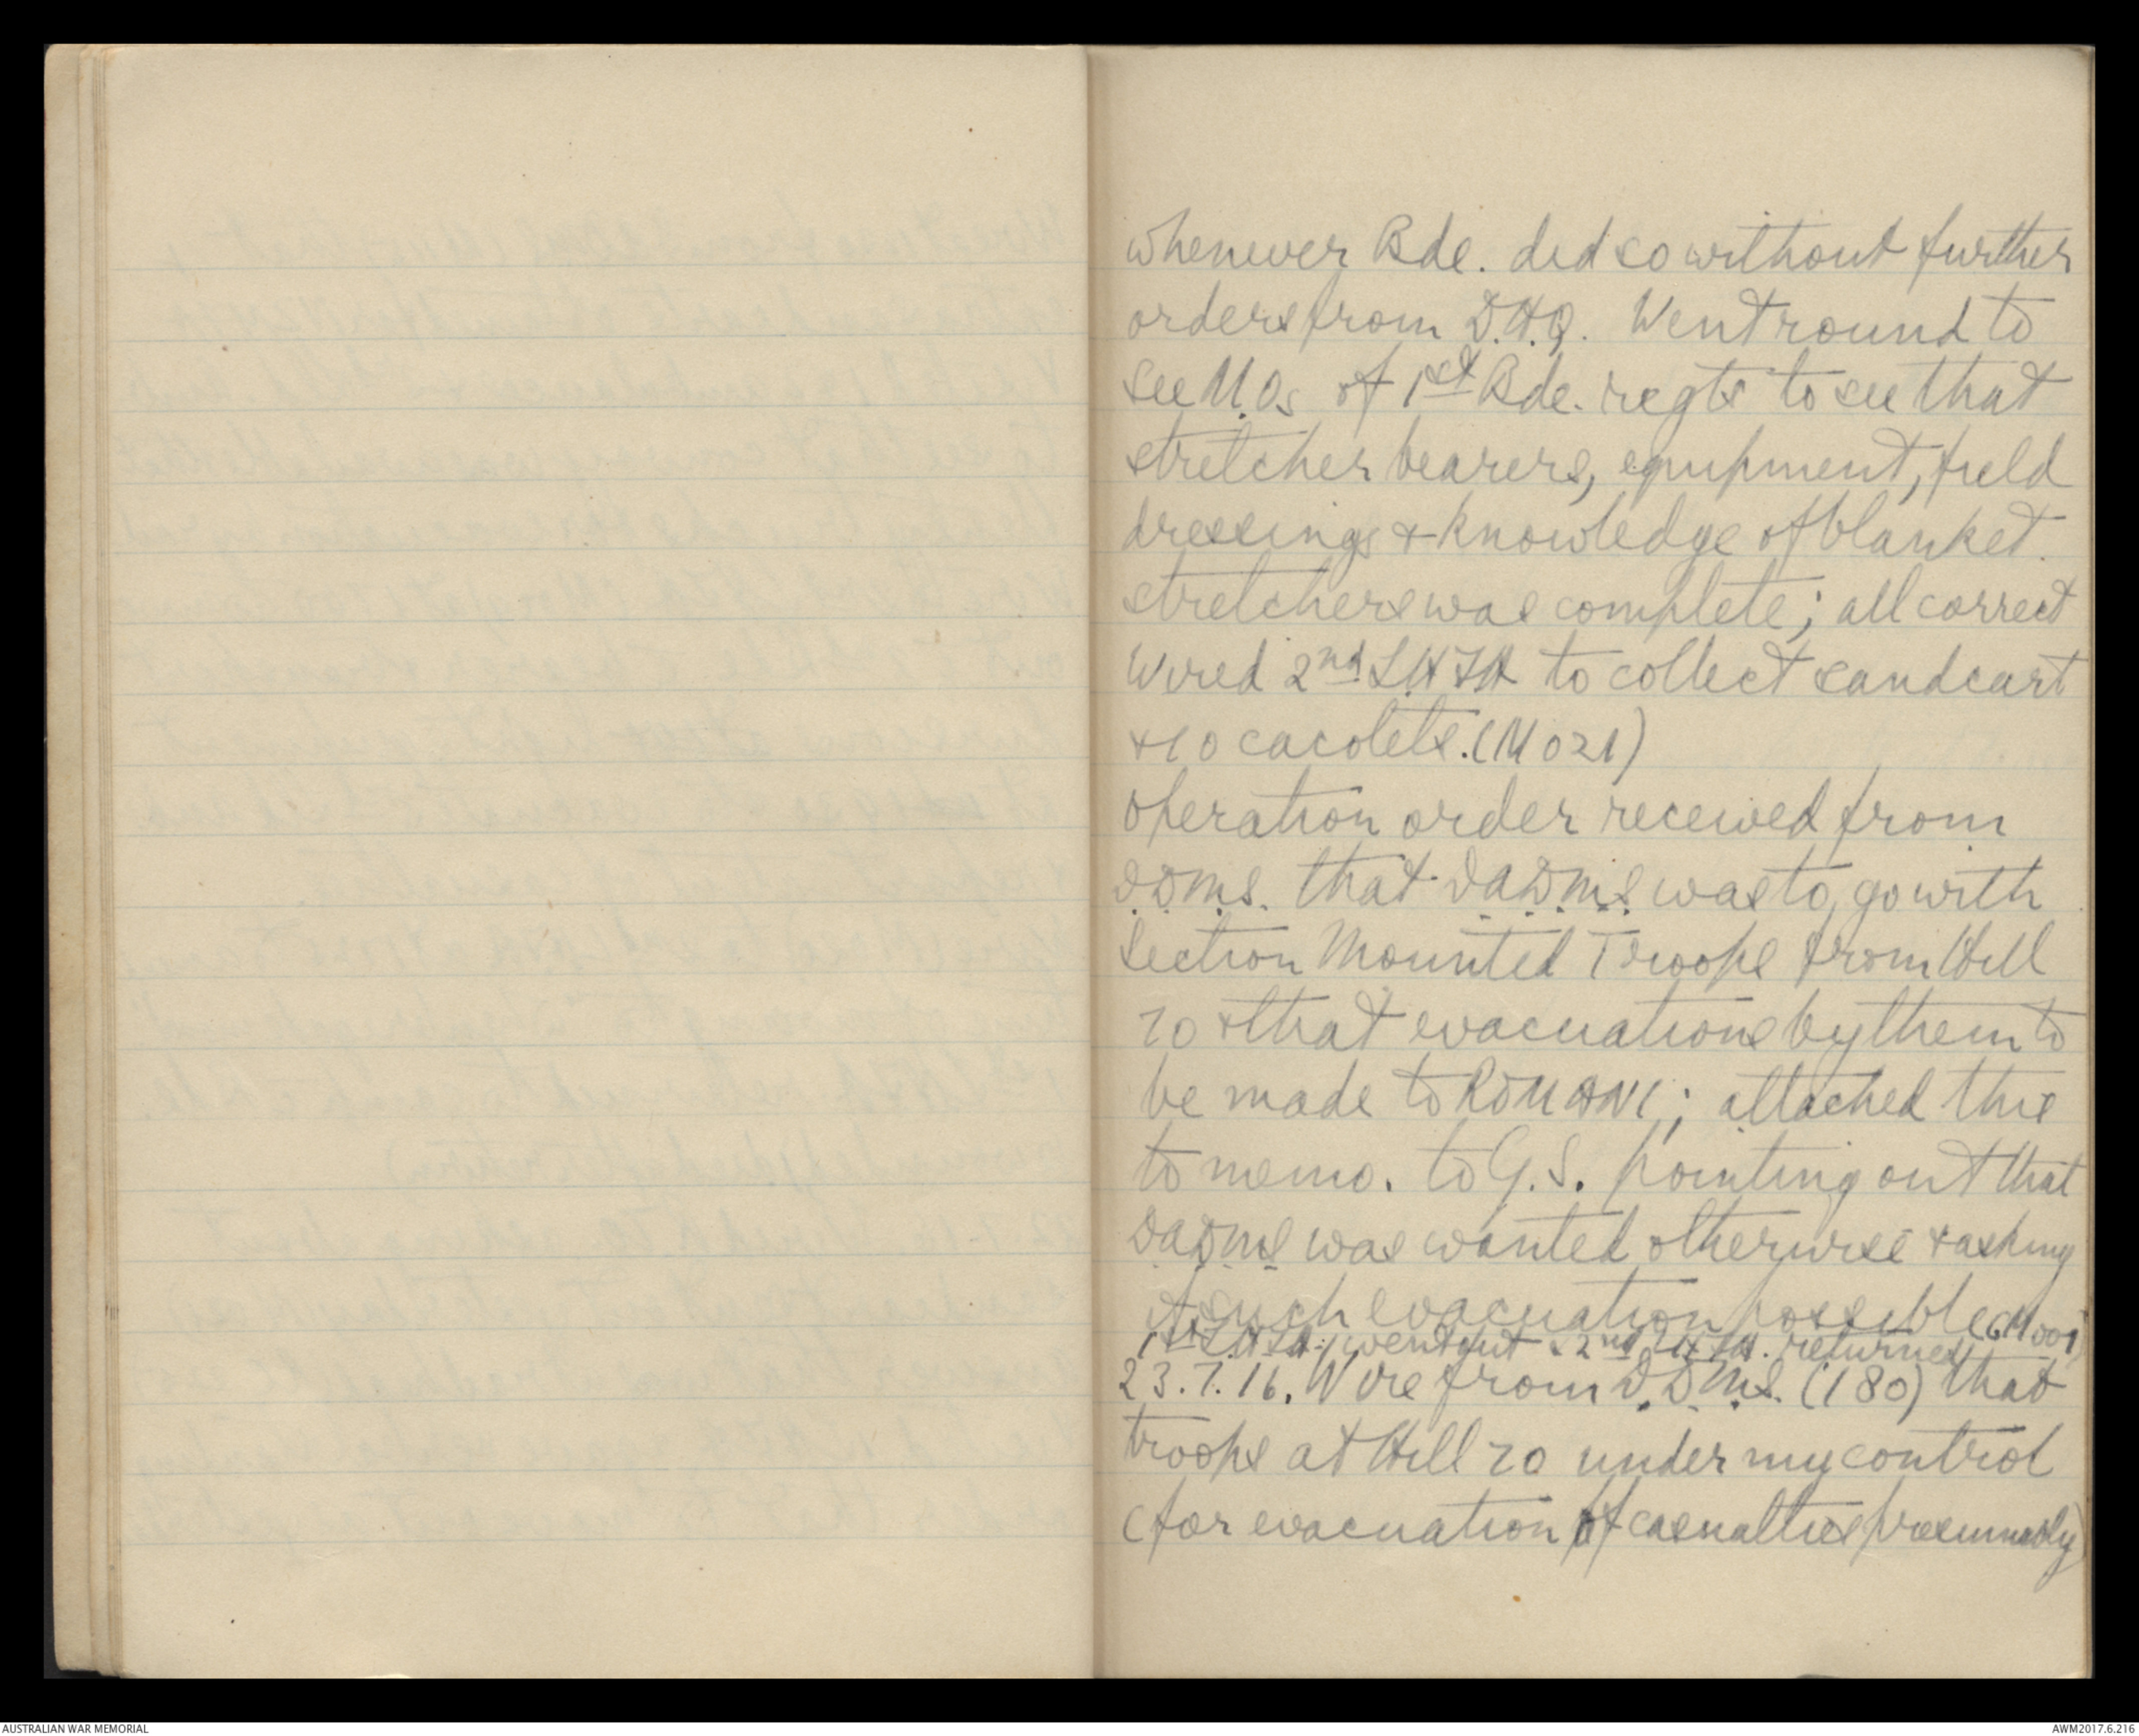 whenever Bde. did so without further
orders from D.H.Q. Went round to
see M.Os of 1st Bde. regts to see that
stretcher bearers, equipment, field
dressings & knowledge of blanket
stretchers was complete; all correct
Wired 2nd L.H.F.A to collect sandcart
& 10 cacolets. (M 021)
Operation order received from
D.D.M.S. that D.A.D.M.S. was to go with
Section Mounted Troops from Hill
70 & that evacuations by them to
be made to ROMANI; attached this
to memo. to G.S. pointing out that
D.A.D.M.S was wanted otherwise & asking
if such evacuation possible (M001)
1st L.H.F.A. went out & 2nd L.H.F.A. returned
23.7.16. Wire from D.D.M.S. (180) that
troops at Hill 70 under my control
(for evacuation of casualties presumably)
AUSTRALIAN WAR MEMORIAL
AWM2017.6.216